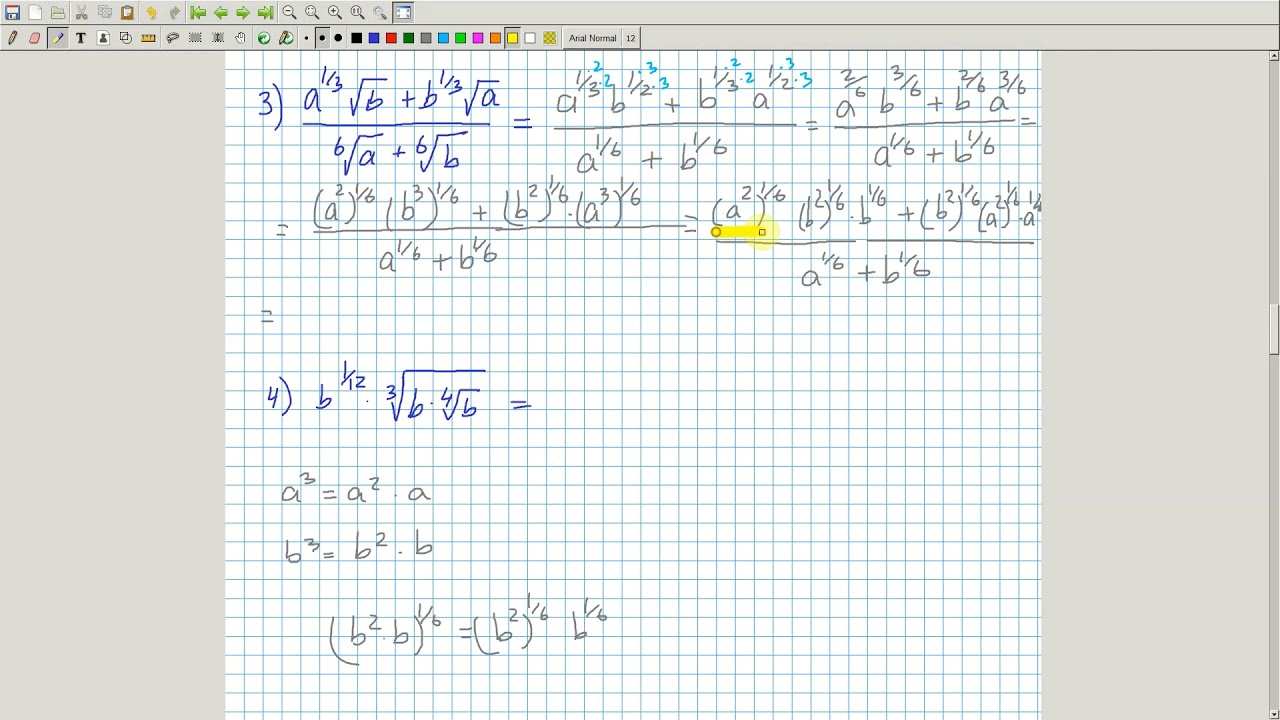 Arial Normal 12
3) (a^{1/3} √b + b^{1/3} √a) / (⁶√a + ⁶√b) = (a^{1/3·2/·2} b^{1/2·3/·3} + b^{1/3·2/·2} a^{1/2·3/·3}) / (a^{1/6} + b^{1/6}) = (a^{2/6} b^{3/6} + b^{2/6} a^{3/6}) / (a^{1/6} + b^{1/6}) =
= ((a²)^{1/6} (b³)^{1/6} + (b²)^{1/6} · (a³)^{1/6}) / (a^{1/6} + b^{1/6}) = ((a²)^{1/6} (b²)^{1/6} · b^{1/6} + (b²)^{1/6} (a²)^{1/6} · a^{1/6}) / (a^{1/6} + b^{1/6})
=
4) b^{1/12} · ³√(b · ⁴√b) =
a³ = a² · a
b³ = b² · b
(b² · b)^{1/6} = (b²)^{1/6} b^{1/6}